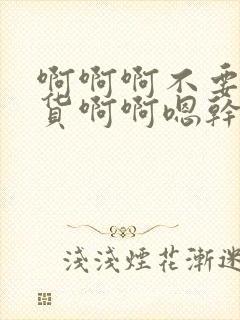 啊啊啊不要
货啊啊嗯幹
淺淺煙花漸迷